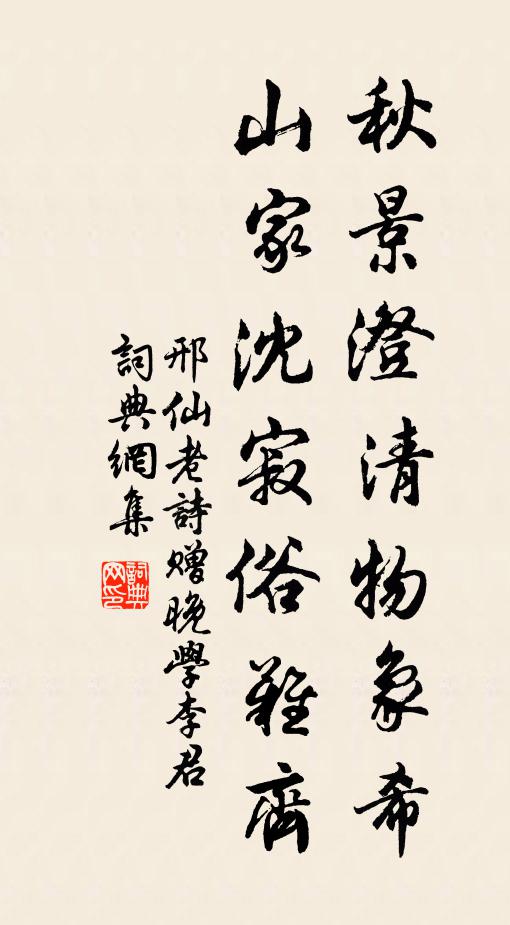 秋景澄清物象希
山家沈寂俗難齊
邢仙老詩贈晚學李君
詞典網集
詞典网印